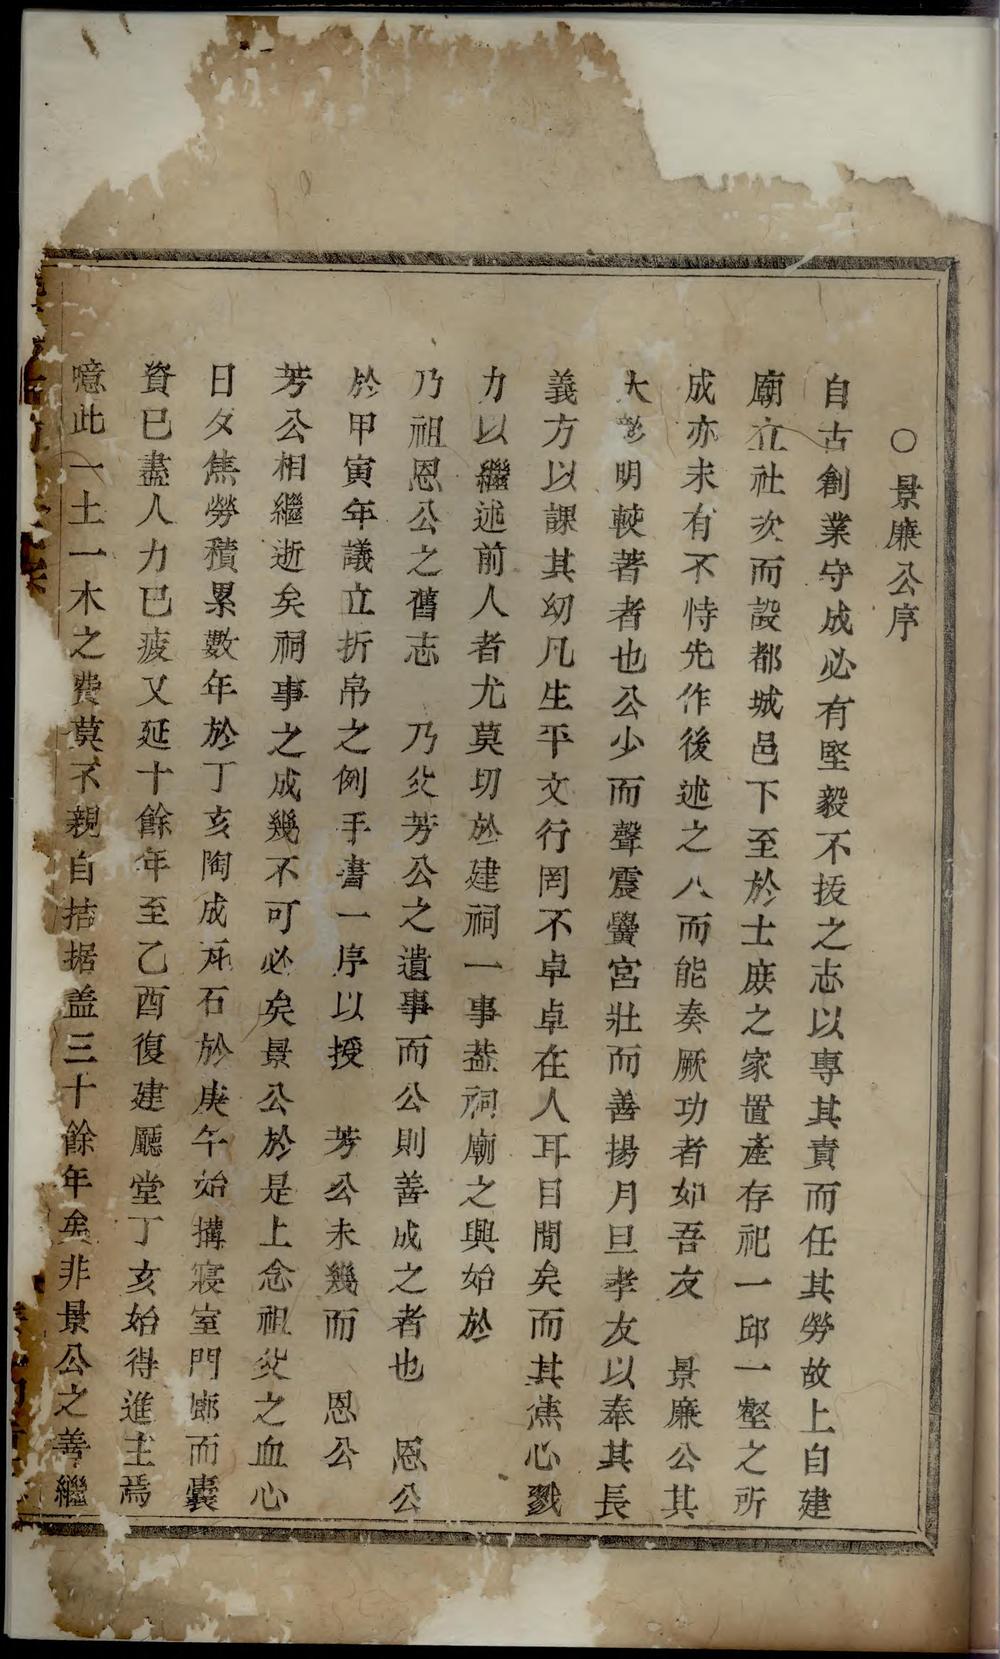 ○景廉公序
自古創業守成必有堅毅不拔之志以專其責而任其勞故上自建
廟立社次而設都城邑下至於士庶之家置產存祀一邱一壑之所
成亦未有不恃先作後述之人而能奏厥功者如吾友 景廉公其
大彰明較著者也公少而聲震黌宮壯而善揚月旦孝友以奉其長
義方以課其幼凡生平文行罔不卓卓在人耳目間矣而其憔心戮
力以繼述前人者尤莫切於建祠一事蓋祠廟之興始於
乃祖恩公之舊志 乃父芳公之遺事而公則善成之者也 恩公
於甲寅年議立折帛之例手書一序以授 芳公未幾而 恩公
芳公相繼逝矣祠事之成幾不可必矣景公於是上念祖父之血心
日夕焦勞積累數年於丁亥陶成瓦石於庚午始搆寢室門廊而囊
資已盡人力已疲又延十餘年至乙酉復建廳堂丁亥始得進主焉
噫此一土一木之費莫不親自拮据盖三十餘年矣非景公之善繼